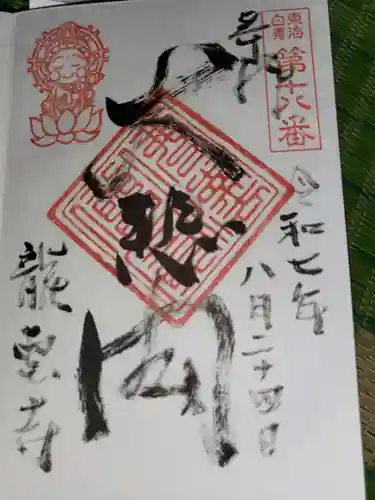 東海
白寿
第十八番
奉拝
大悲閣
令和七年
八月二十四日
龍雲寺